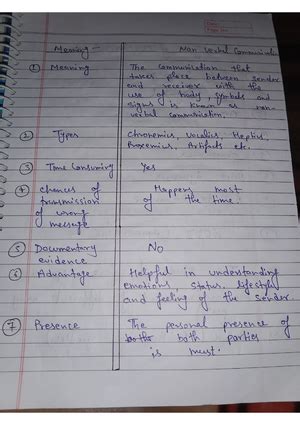 Date
Page No.
Meaning - Non Verbal Communica
① Meaning The communication that
takes place between sender
and receiver with the
use of body, symbols and
signs is known as non-
verbal communication.
② Types Chronemics, Vocalics, Haptics,
Proxemics, Artifacts etc.
③ Time Consuming Yes
④ Chances of Happens most
transmission of the time.
of wrong
message
⑤ Documentary No
evidence
⑥ Advantage Helpful in understanding
emotions, status, lifestyle
and feeling of the sender.
⑦ Presence The personal presence of
both both parties
is must.